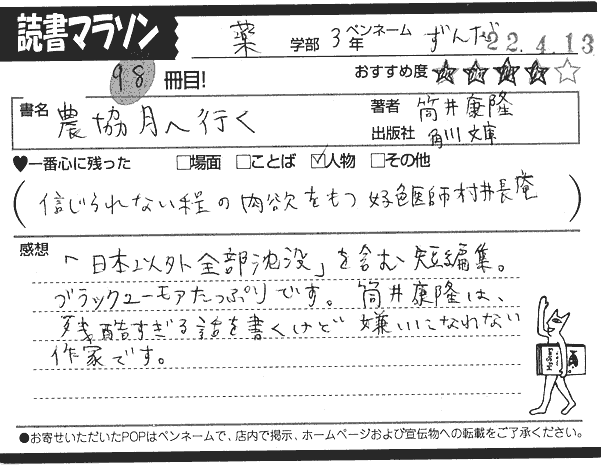 読書マラソン
薬 学部 3年 ペンネーム ずんだ 22.4.13
98 冊目! おすすめ度 ★★★★☆
書名 農協月へ行く
著者 筒井康隆
出版社 角川文庫
♥一番心に残った □場面 □ことば ☑人物 □その他
(信じられない程の肉欲をもつ好色医師村井長庵)
感想
「日本以外全部沈没」を含む短編集。
ブラックユーモアたっぷりです。筒井康隆は、
残酷すぎる話を書くけど嫌いになれない
作家です。
●お寄せいただいたPOPはペンネームで、店内で掲示、ホームページおよび宣伝物への転載をご了承ください。